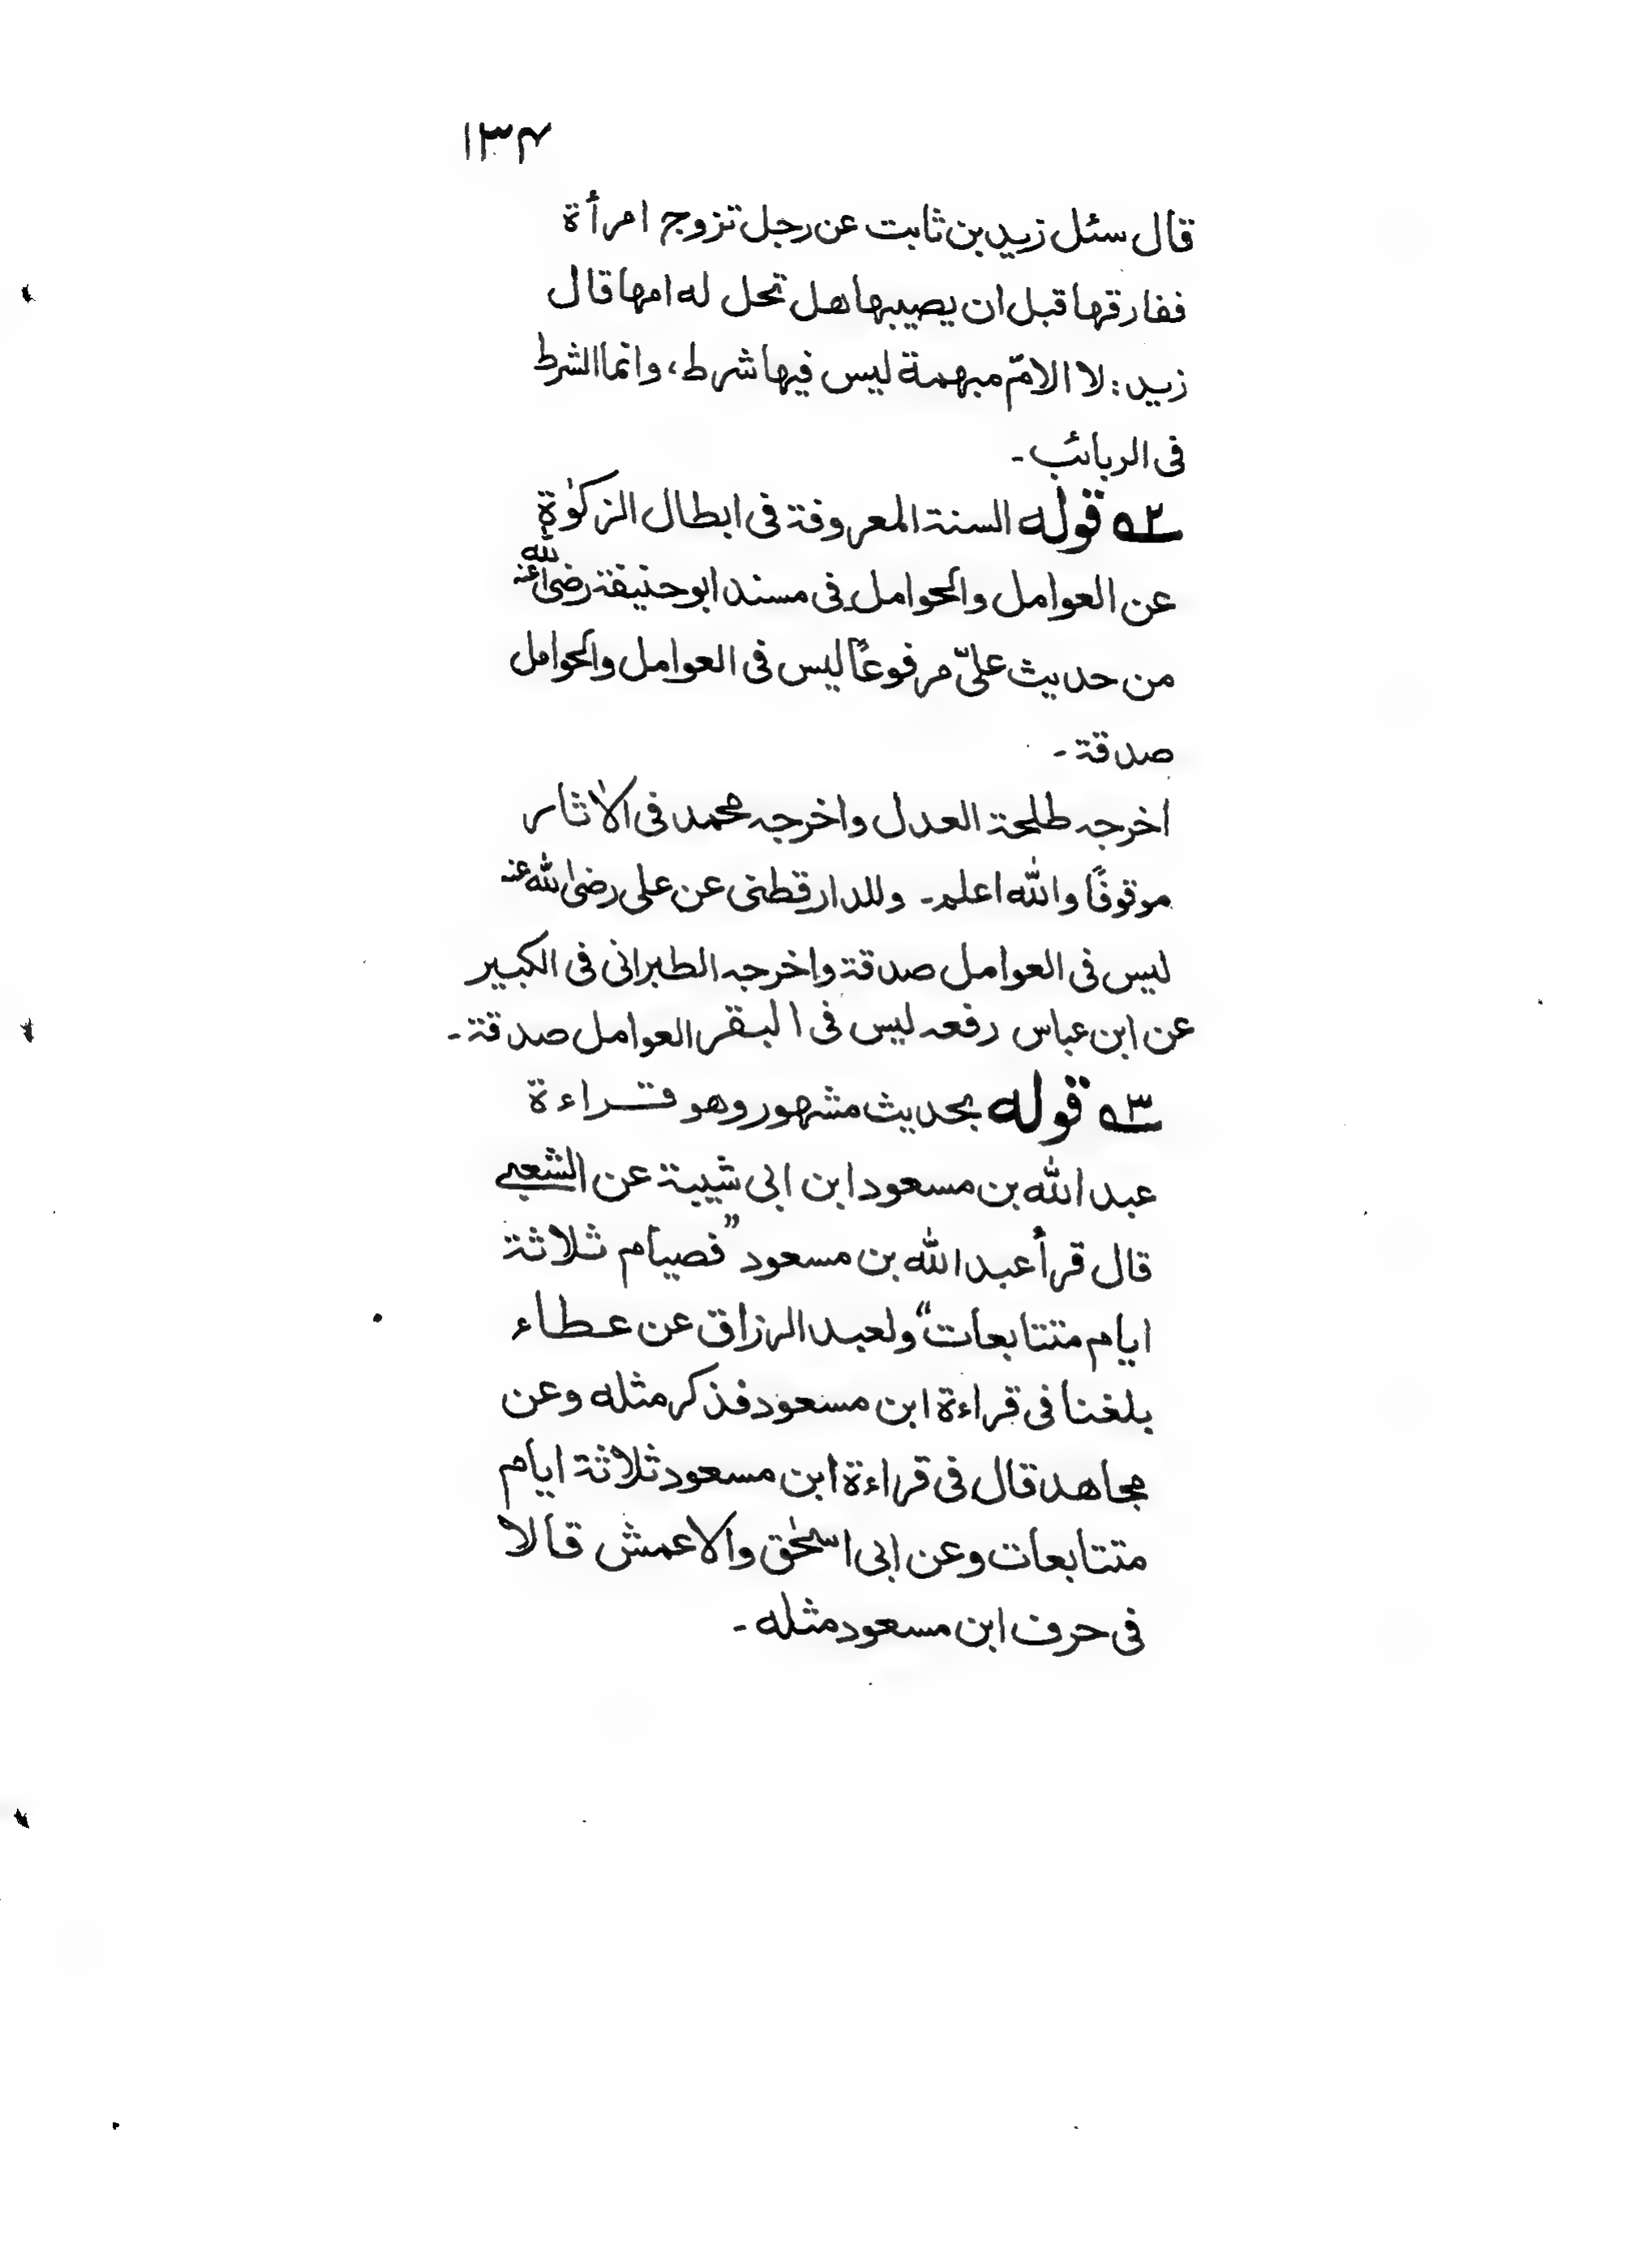 ۱۳۴
قال سئل زيد بن ثابت عن رجل تزوج امرأة
ففارقها قبل ان يصيبها هل تحل له امها قال
زيد: لا الامّ مبهمة ليس فيها شرط، وانما الشرط
فى الربائب ـ
۵۲ قوله السنة المعروفة فى ابطال الزكوٰة
عن العوامل والحوامل فى مسند ابو حنيفة رضى الله عنه
من حديث علىّ مرفوعًا ليس فى العوامل والحوامل
صدقة ـ
اخرجه طلحة العدل واخرجه محمد فى الاٰثار
موقوفًا والله اعلم ـ وللدارقطنى عن على رضى الله عنه
ليس فى العوامل صدقة واخرجه الطبرانى فى الكبير
عن ابن عباس رفعه ليس فى البقر العوامل صدقة ـ
۵۳ قوله بحديث مشهور وهو قراءة
عبد الله بن مسعود ابن ابى شيبة عن الشعبے
قال قرأ عبد الله بن مسعود ”فصيام ثلاثة
ايام متتابعات“ ولعبد الرزاق عن عطاء
بلغنا فى قراءة ابن مسعود فذكر مثله وعن
مجاهد قال فى قراءة ابن مسعود ثلاثة ايام
متتابعات وعن ابى اسحٰق والاعمش قالا
فى حرف ابن مسعود مثله ـ